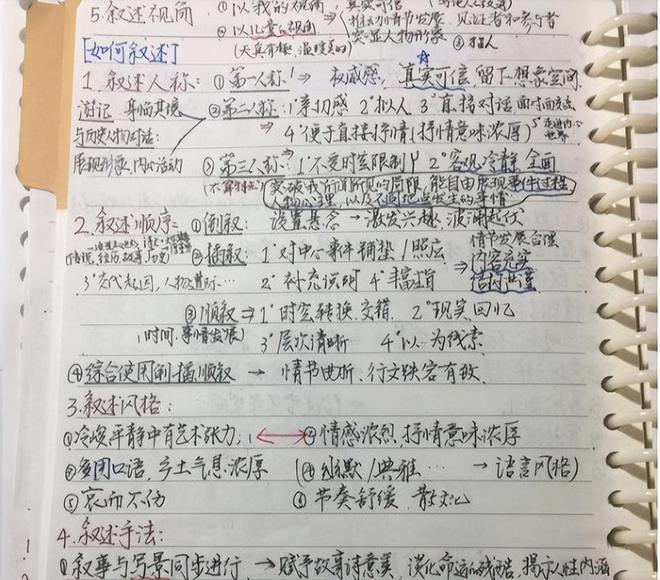 5.叙述视角 ①以"我"的视角 ⇒ 真实可信
②以儿童的视角 推动情节发展,见证者和参与者
(天真有趣,温暖美好) 突显人物形象 ③拟人
[如何叙述]
1.叙述人称:①第一人称 ⇒ 权威感,真实可信,留下想象空间
游记 身临其境 ②第二人称:1°亲切感 2°拟人 3°直接对话,面对面交流
与历史人物对话: ⇒ 4°便于直接抒情(抒情意味浓厚) 5°走进内心世界
展现形象,内心活动 ③第三人称:1°不受时空限制 2°客观冷静,全面
突破我所闻所见的局限,能自由展现事件过程
人物心理,以及不同地点发生的事情
2.叙述顺序:①倒叙:设置悬念→激发兴趣,波澜起伏
②插叙:1°对中心事件铺垫/照应 情节发展合理
3°交代起因,人物道际… 2°补充说明 4°丰富 ⇒ 内容充实
③顺叙⇒1°时空转换,交错 2°现实,回忆
(时间,事情发展) 3°层次清晰 4°以 为线索
④综合使用倒插顺叙 → 情节曲折,行文跌宕有致
3.叙述风格:
①冷峻平静中有艺术张力, ↔ ②情感浓烈,抒情意味浓厚
③多用口语,乡土气息浓厚 (④幽默/典雅… → 语言风格)
⑤哀而不伤 ⑥节奏舒缓,散文化
4.叙述手法:
①叙事与写景同步进行 → 赋予故事诗意美,淡化命运的残酷,揭示人性内涵